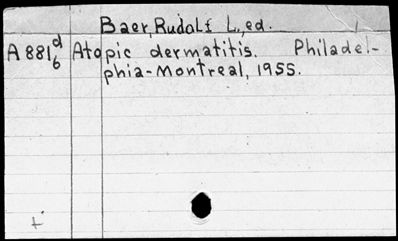 Baer, Rudolf L., ed.
A 881 d Atopic dermatitis. Philadel-
6 phia-Montreal, 1955.